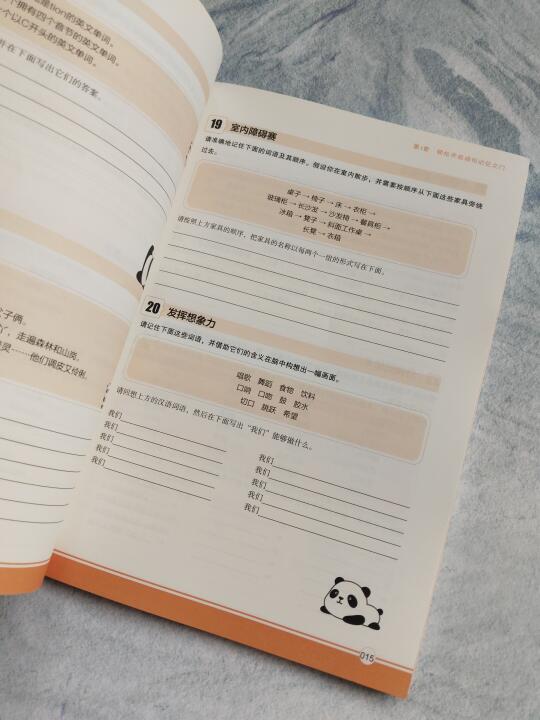 是tion的英文单词。
个拥有四个音节的英文单词。
个以C开头的英文单词。
并在下面写出它们的答案。
子俩。
走遍森林和山岗。
灵……他们调皮又伶俐。
第1章 轻松开启通往记忆之门
19 室内障碍赛
请准确地记住下面的词语及其顺序。假设你在室内散步,并需要按顺序从下面这些家具旁绕
过去。
桌子→椅子→床→衣柜→
玻璃柜→长沙发→沙发椅→餐具柜→
冰箱→凳子→斜面工作桌→
长凳→衣箱
请按照上方家具的顺序,把家具的名称以每两个一组的形式写在下面。
20 发挥想象力
请记住下面这些词语,并借助它们的含义在脑中构想出一幅画面。
唱歌 舞蹈 食物 饮料
口哨 口吻 鼓 胶水
切口 跳跃 希望
请回想上方的汉语词语,然后在下面写出“我们”能够做什么。
我们
我们
我们
我们
我们
我们
我们
我们
我们
我们
015